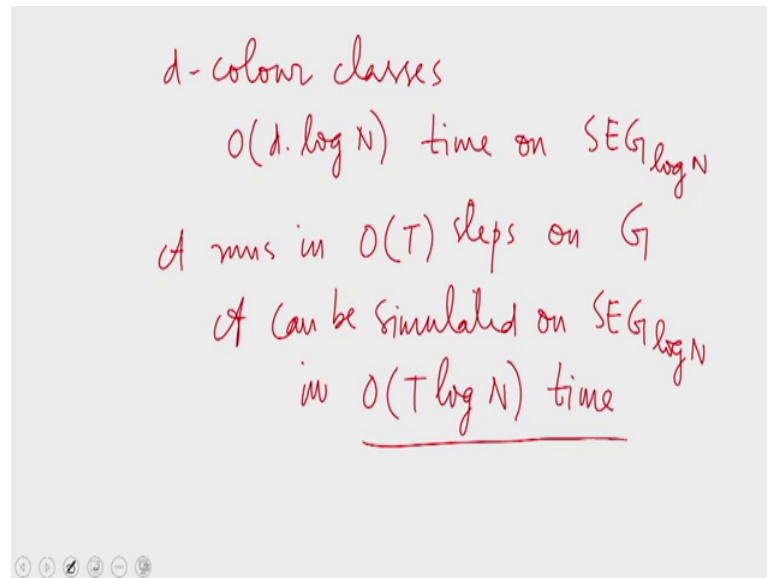 d-colour classes
O(d. log N) time on SEG_log N
A runs in O(T) steps on G
A can be simulated on SEG_log N
in O(T log N) time